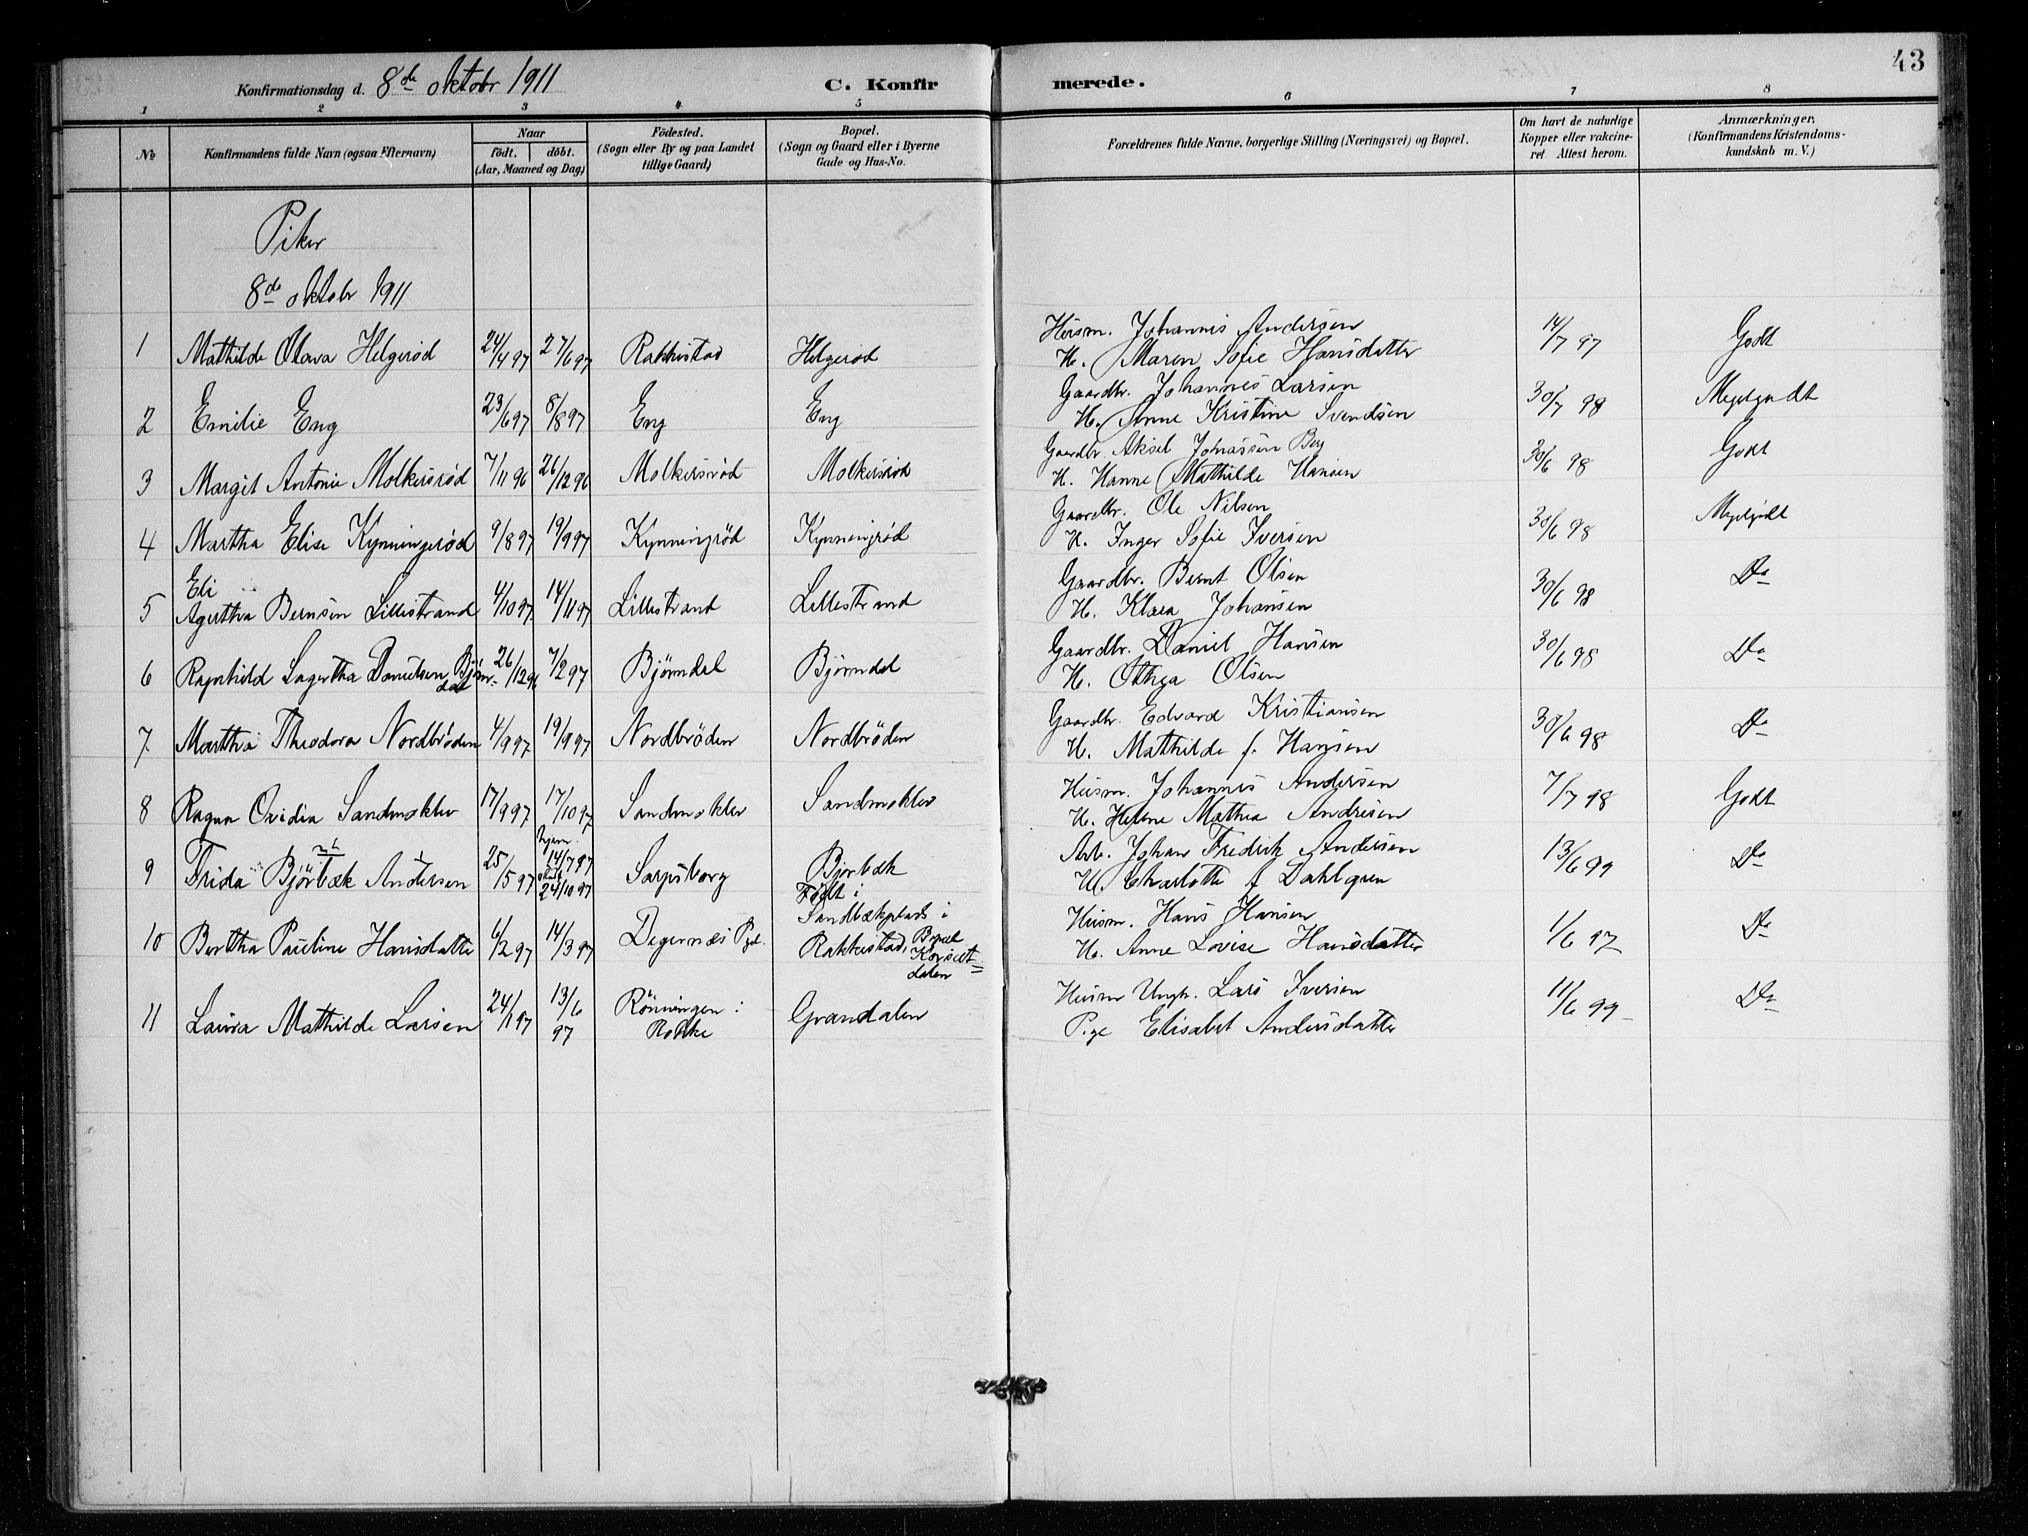 43
Konfirmationsdag d. 8de oktobr 1911 C. Konfirmerede.
1 2 3 4 5 6 7 8
No
Konfirmandens fulde Navn (ogsaa Efternavn)
Naar
födt. döbt.
(Aar, Maaned og Dag)
Födested.
(Sogn eller By og paa Landet
tillige Gaard)
Bopæl.
(Sogn og Gaard eller i Byerne
Gade og Hus-No.
Forældrenes fulde Navne, borgerlige Stilling (Næringsvei) og Bopæl.
Om havt de naturlige
Kopper eller vakcine-
ret Attest herom.
Anmærkninger,
(Konfirmandens Kristendoms-
kundskab m. V.)
Piker
8de oktobr 1911
1 Mathilde Olava Helgerød 24/4 97 27/6 97 Rakkestad Helgerød Husm. Johannes Andersen 14/7 97 Godt
H. Maren Sofie Hansdatter
2 Emilie Eng 23/6 97 8/8 97 Eng Eng Gaardbr. Johannes Larsen 30/7 98 Megetgodt
H. Anne Kristine Svendsen
3 Margit Antonie Molkersrød 7/11 96 26/12 96 Molkersrød Molkersrød Gaardbr Aksel Johnassen Berg 30/6 98 Godt
H. Hanne Mathilde Hansen
4 Martha Elise Kynningsrød 9/8 97 19/9 97 Kynningrød Kynningrød Gaardbr. Ole Nilsen 30/6 98 Megetgodt
H. Inger Sofie Iversen
Eli
5 Agertha Bernsen Lillestrand 4/10 97 14/11 97 Lillestrand Lillestrand Gaardbr. Bernt Olsen 30/6 98 Do
H. Klara Johansen
6 Ragnhild Lagertha Danielsen Bjørn- 26/12 96 7/2 97 Bjørndal Bjørndal Gaardbr. Daniel Hansen 30/6 98 Do
dal
H. Othega Olsen
7. Martha Theodora Nordbrøden 4/9 97 19/9 97 Nordbrøden Nordbrøden Gaardbr. Edvard Kristiansen 30/6 98 Do
H. Mathilde f. Hansen
8 Ragna Ovidia Sandmoklev 17/9 97 17/10 97 Sandmoklev Sandmoklev Husm. Johannes Andersen 7/7 98 Godt
H. Helene Mathea Andresen
9 Frida Bjørbæk Andersen 25/5 97 hjem. 14/7 97 24/10 97 Sarpsborg Bjørbæk Arb. Johan Fredrik Andersen 13/6 99 Do
H. Charlotte f Dahlgren
10 Bertha Pauline Hansdatter 6/2 97 14/3 97 Degernæs Pgd. Født i
Sandbækplads i
Rakkestad, Bopæl
Korsæt-
dalen
Husm. Hans Hansen 1/6 97 Do
H. Anne Lovise Hansdatter
11 Laura Mathilde Larsen 24/1 97 13/6 97 Rönningen i Rokke Grandalen Husm Ungk. Lars Iversen 11/6 99 Do
Pige Elisabet Andersdatter